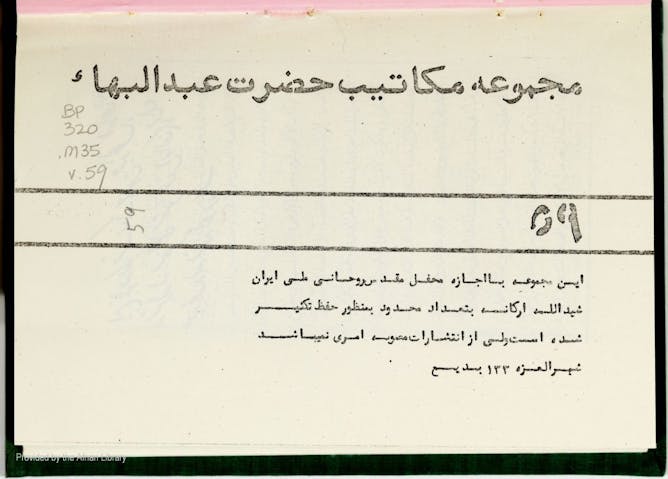 مجموعه مکاتیب حضرت عبدالبهاء
BP
320
.M35
v.59
59
۵۹
این مجموعه با اجازه محفل مقدس روحانی ملی ایران
شیدالله ارکانه بتعداد محدود بمنظور حفظ تکثیر
شده است ولی از انتشارات مصوبه امری نمیباشد
شهرالعزه ۱۳۳ بدیع
Provided by the Afnan Library